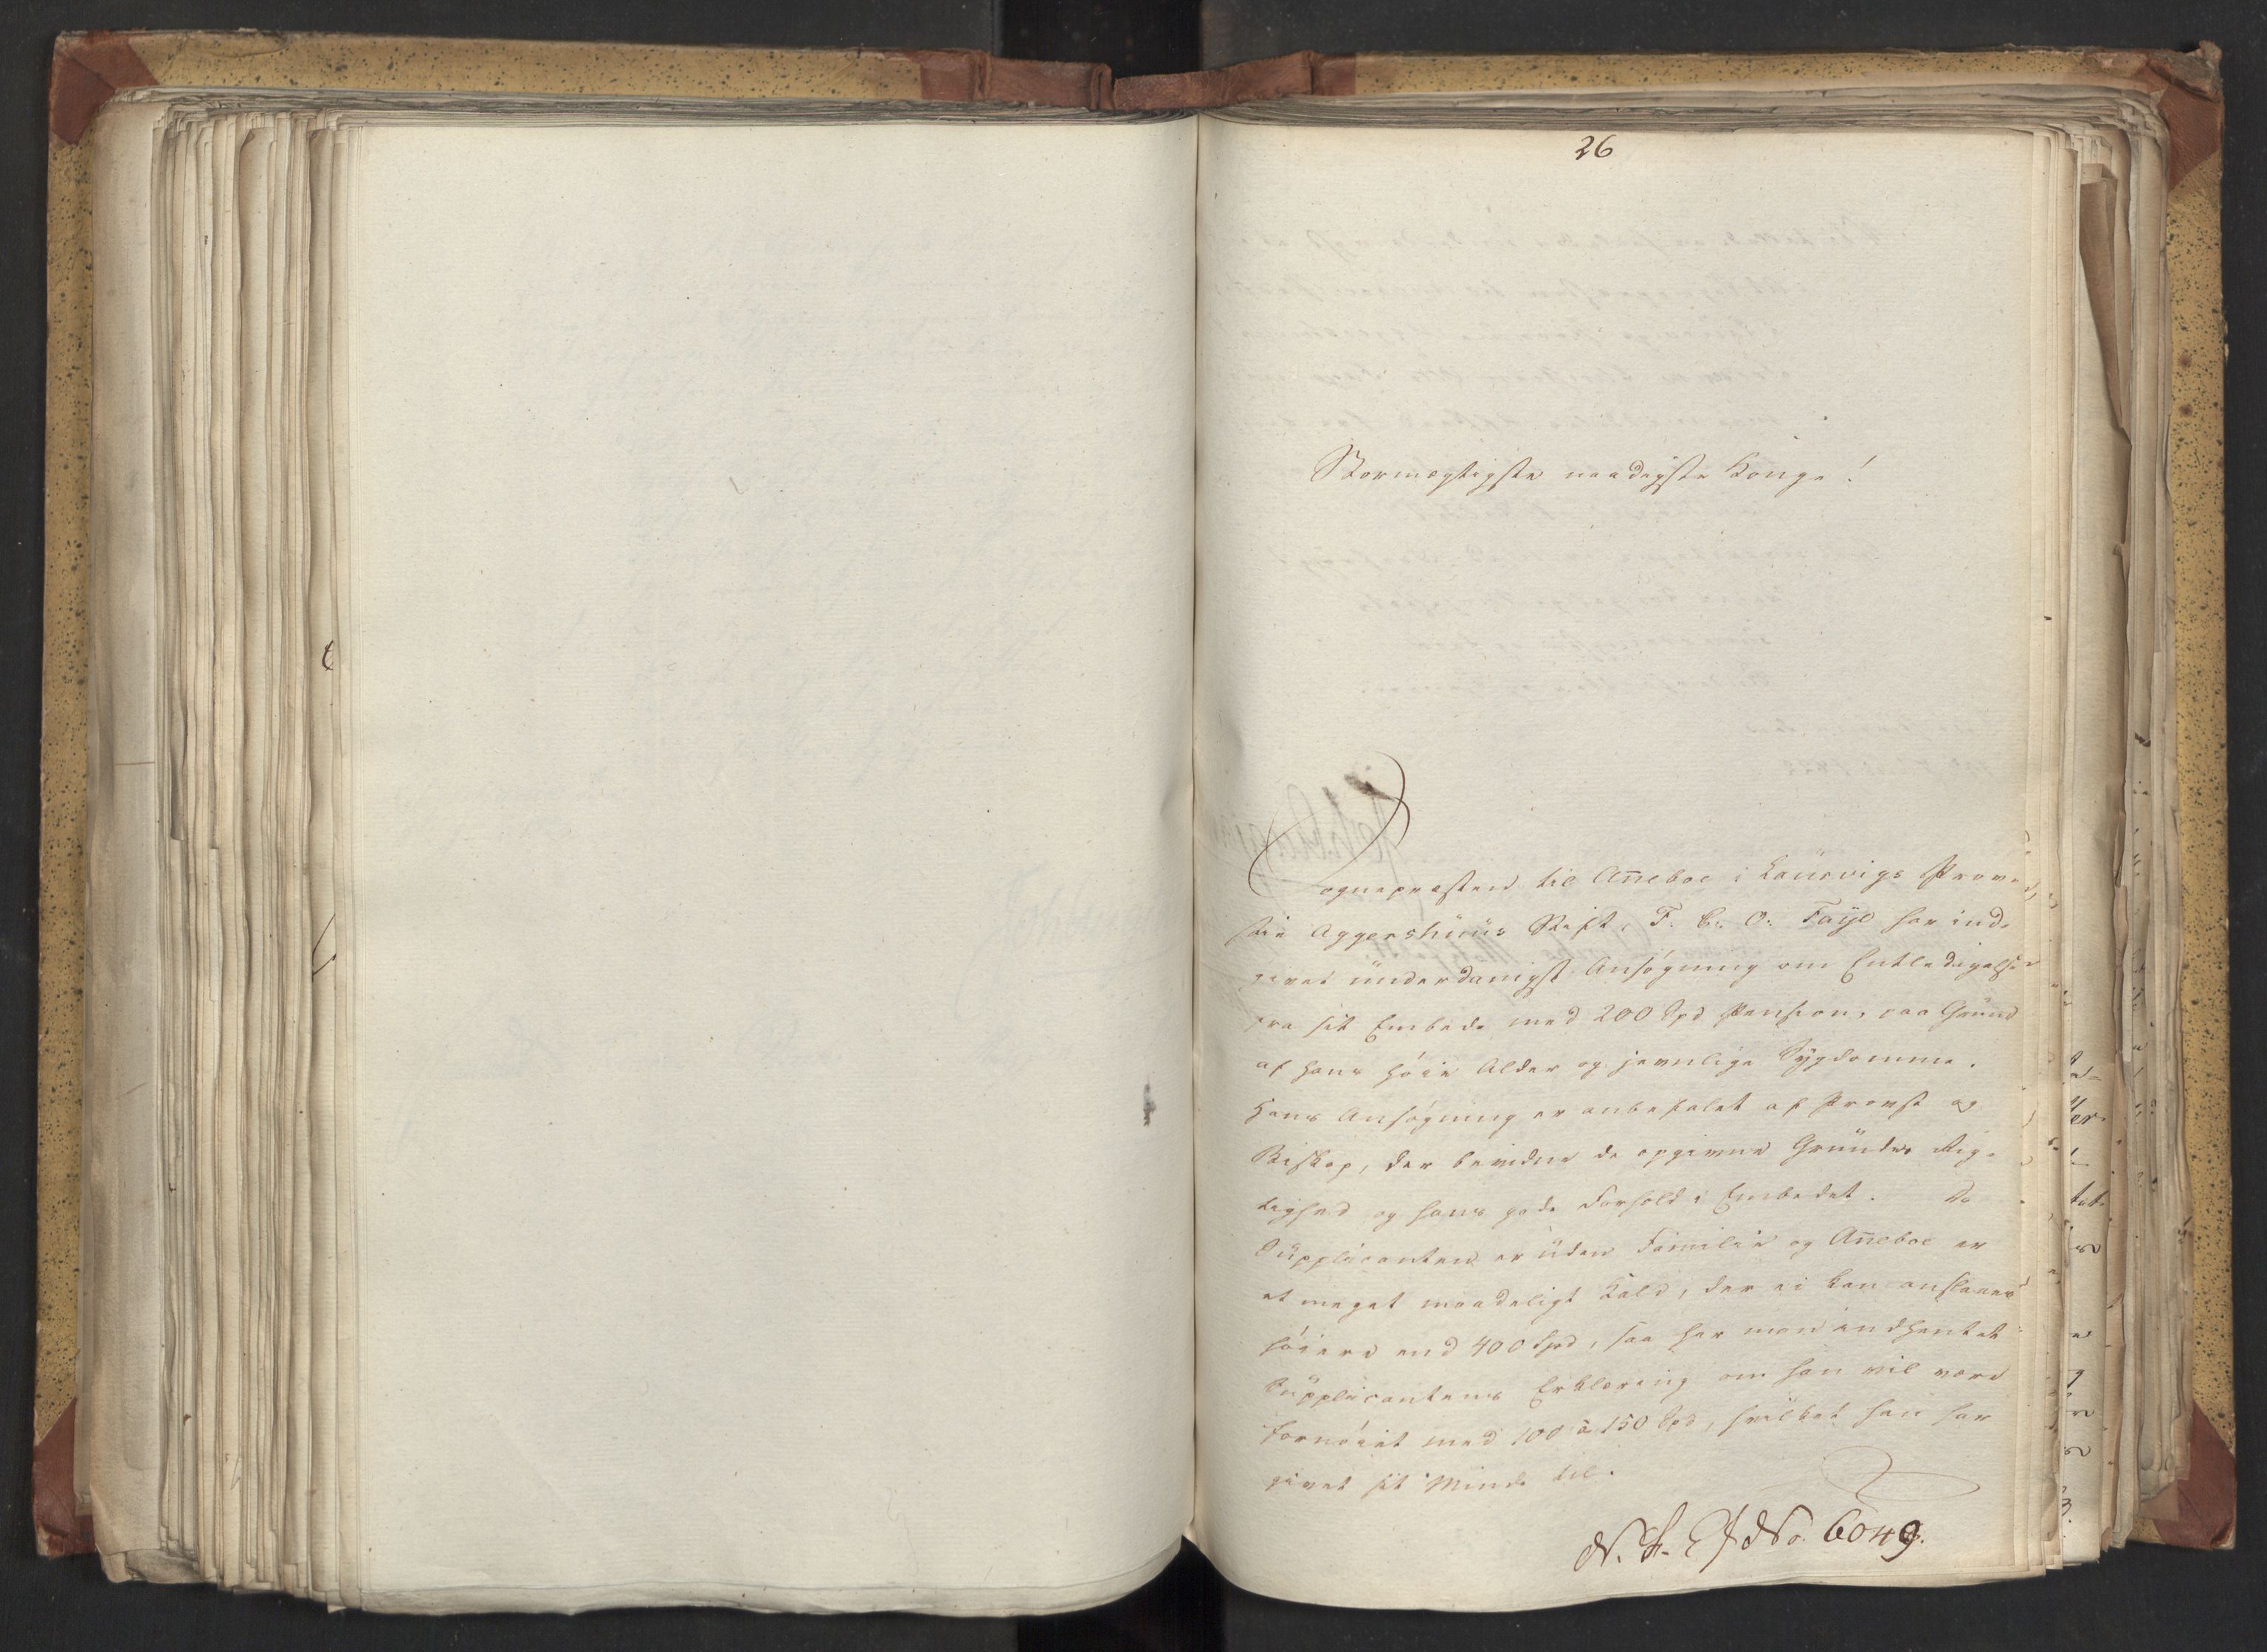 26
Stormægtigste naadigste Konge!
Sognepræsten til Añeboe i Laurvigs Prov-
stie Aggershuus Stift, F. C. O. Faÿe har ind-
givet underdanigst Ansögning om Entledigelse
fra sit Embede med 200 Spd Pension, paa Grund
af hans höie Alder og jevnlige Sygdomme.
Hans Ansögning er anbefalet af Provst og
Biskop, der bevidne de opgivne Grundes Rig-
tighed og hans gode Forhold i Embedet. Da
Supplicanten er uden Familie og Añeboe er
et meget maadeligt Kald, der ei kan anslaaes
höiere end 400 Spd, saa har man indhentet
Supplicantens Erklæring om han vil være
fornöiet med 100 à 150 Spd, hvilket han har
givet sit Minde til.
No. 6049.